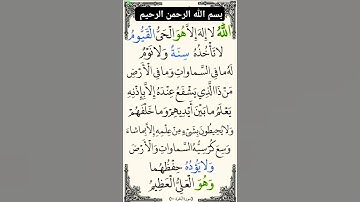 بسم الله الرحمن الرحيم
اللَّهُ لَا إِلَهَ إِلَّا هُوَ الْحَيُّ الْقَيُّومُ
لَا تَأْخُذُهُ سِنَةٌ وَلَا نَوْمٌ
لَهُ مَا فِي السَّمَاوَاتِ وَمَا فِي الْأَرْضِ
مَنْ ذَا الَّذِي يَشْفَعُ عِنْدَهُ إِلَّا بِإِذْنِهِ
يَعْلَمُ مَا بَيْنَ أَيْدِيهِمْ وَمَا خَلْفَهُمْ
وَلَا يُحِيطُونَ بِشَيْءٍ مِنْ عِلْمِهِ إِلَّا بِمَا شَاءَ
وَسِعَ كُرْسِيُّهُ السَّمَاوَاتِ وَالْأَرْضَ
وَلَا يَؤُدُهُ حِفْظُهُمَا
وَهُوَ الْعَلِيُّ الْعَظِيمُ